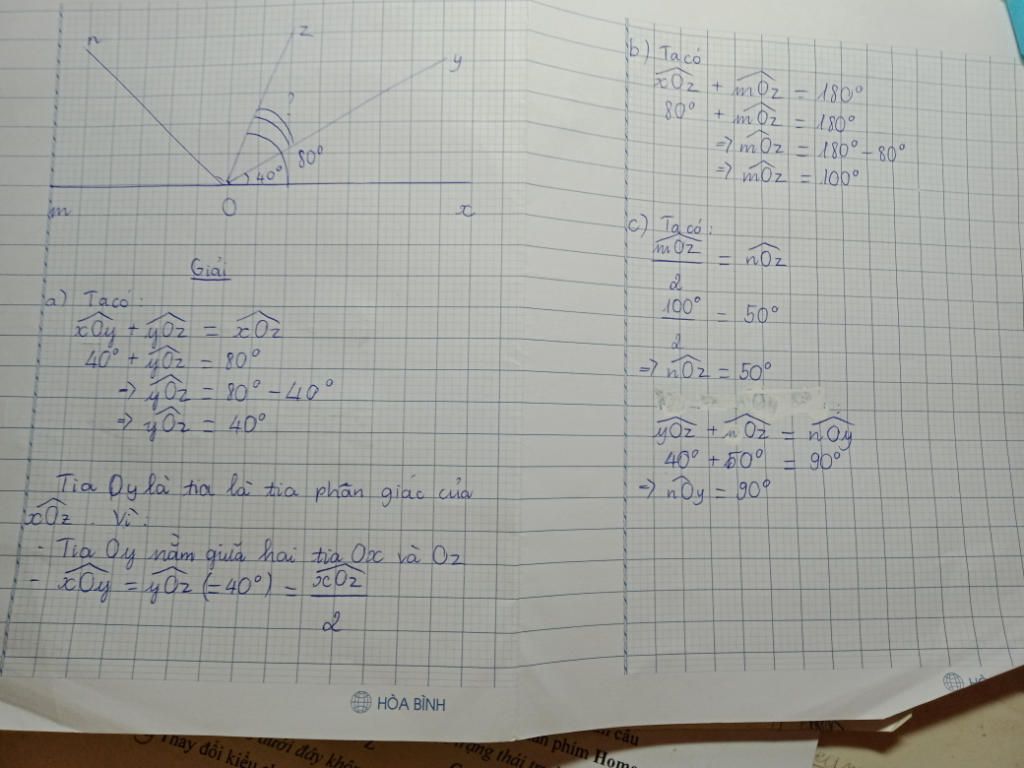 n
z
y
?
80°
40°
m
O
x
Giải
a) Ta có:
xOy + yOz = xOz
40° + yOz = 80°
=> yOz = 80° - 40°
=> yOz = 40°
Tia Oy là tia là tia phân giác của
xOz. Vì:
- Tia Oy nằm giữa hai tia Ox và Oz
- xOy = yOz (= 40°) = xOz
2
HÒA BÌNH
b) Ta có
xOz + mOz = 180°
80° + mOz = 180°
=> mOz = 180° - 80°
=> mOz = 100°
c) Ta có:
mOz = nOz
2
100° = 50°
2
=> nOz = 50°
yOz + nOz = nOy
40° + 50° = 90°
=> nOy = 90°
Thay đổi kiểu
dưới đây
trạng thái
phím Home
câu